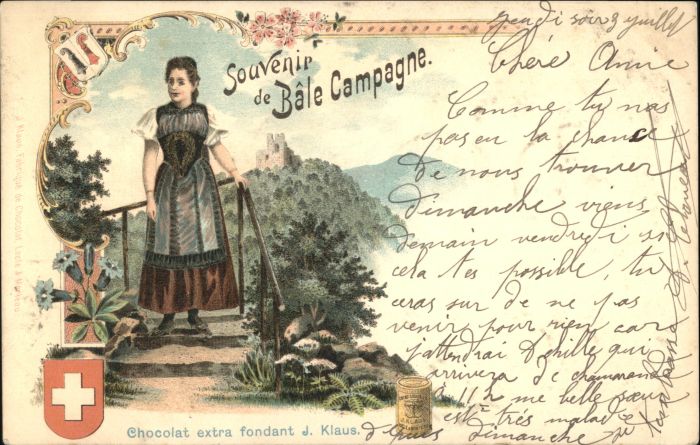 Souvenir
de Bâle Campagne.
jeudi soir 3 juillet
Chère Annie
Comme tu nas
pas eu la chance
de nous trouver
dimanche viens
demain vendredi si
cela tes possible, tu
seras sur de ne pas
venir pour rien car
j'attendrai Achille qui
arrivera de
me belle sœur
est très malade
depuis dimanche je
Chocolat extra fondant J. Klaus.
J. Klaus, Fabrique de Chocolat, Locle & Morteau